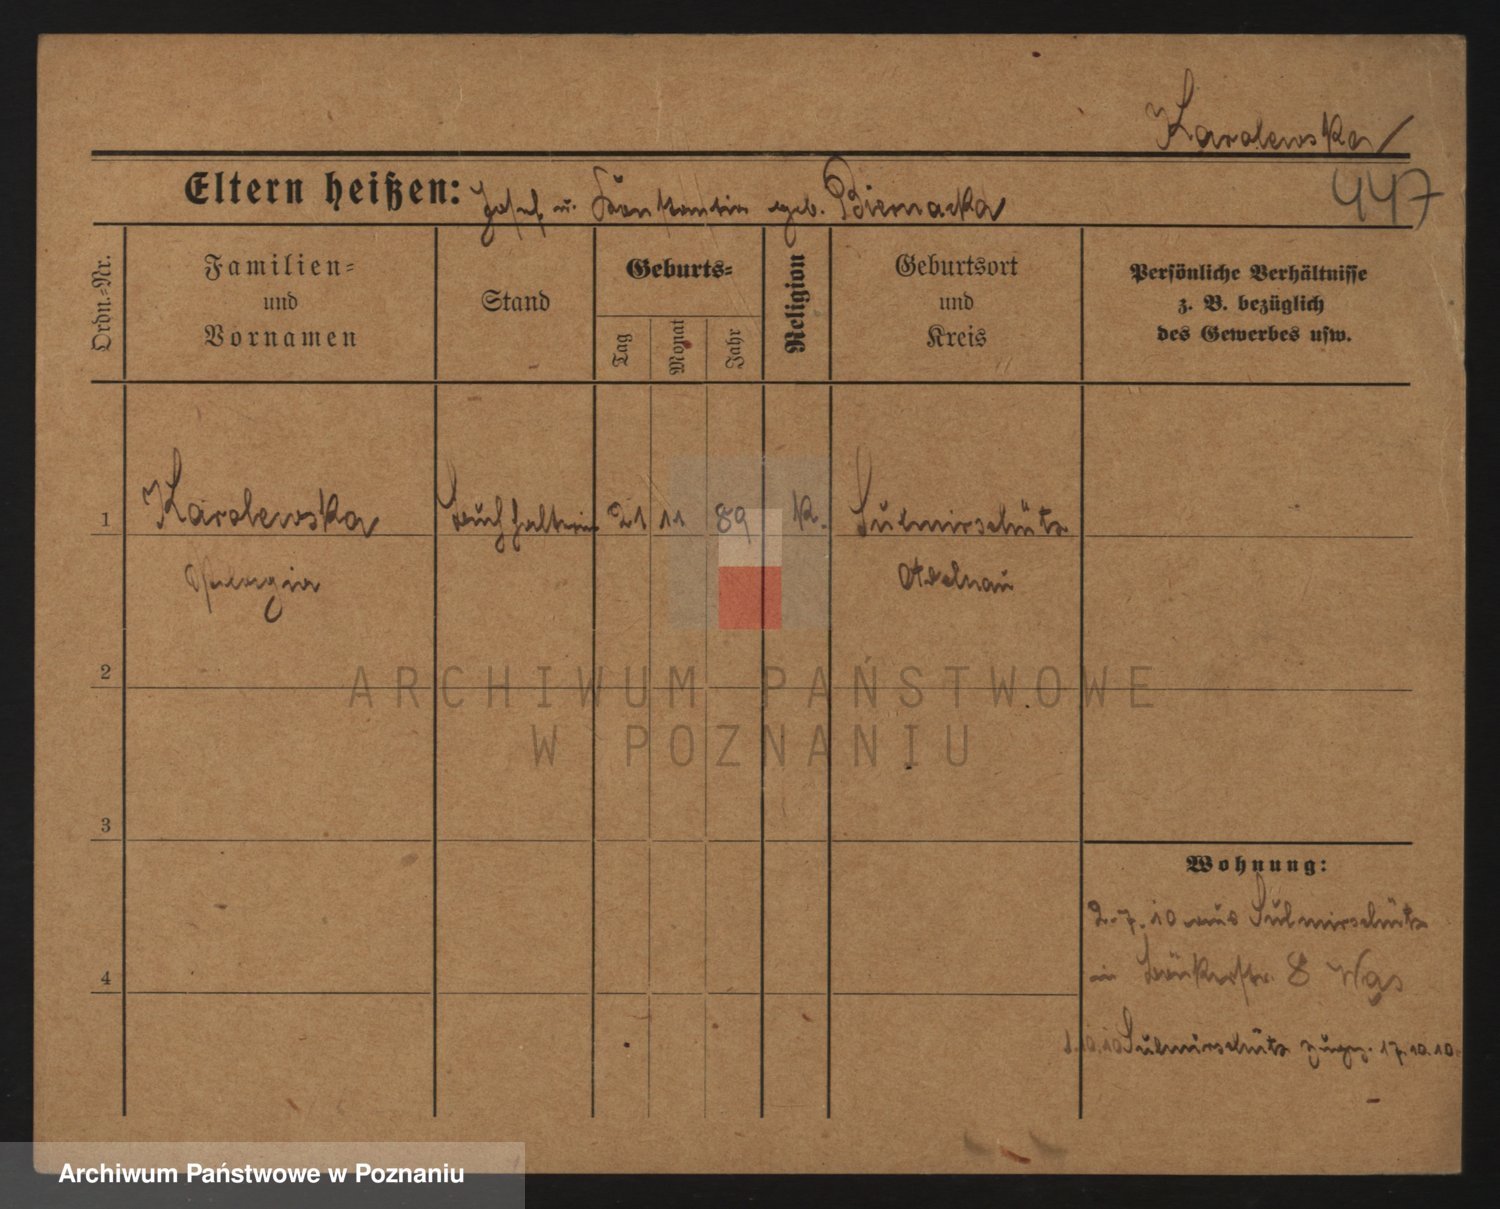 Karolewska
447
Eltern heißen: Josef u. Konstantia geb. Biernacka
Ordn.-Nr.
Familien-
und
Vornamen
Stand
Geburts-
Tag
Monat
Jahr
Religion
Geburtsort
und
Kreis
Persönliche Verhältnisse
z. B. bezüglich
des Gewerbes usw.
1 Karolewska Buchhalterin 21 11 89 K. Sulmirschütz
Pelagia Adelnau
2
3
4
Wohnung:
2.7.10 aus Sulmirschütz
in Bäckerstr. 8 Wgs
1.10.10 Sulmirschütz zugez. 17.10.10.
ARCHIWUM PAŃSTWOWE
W POZNANIU
Archiwum Państwowe w Poznaniu